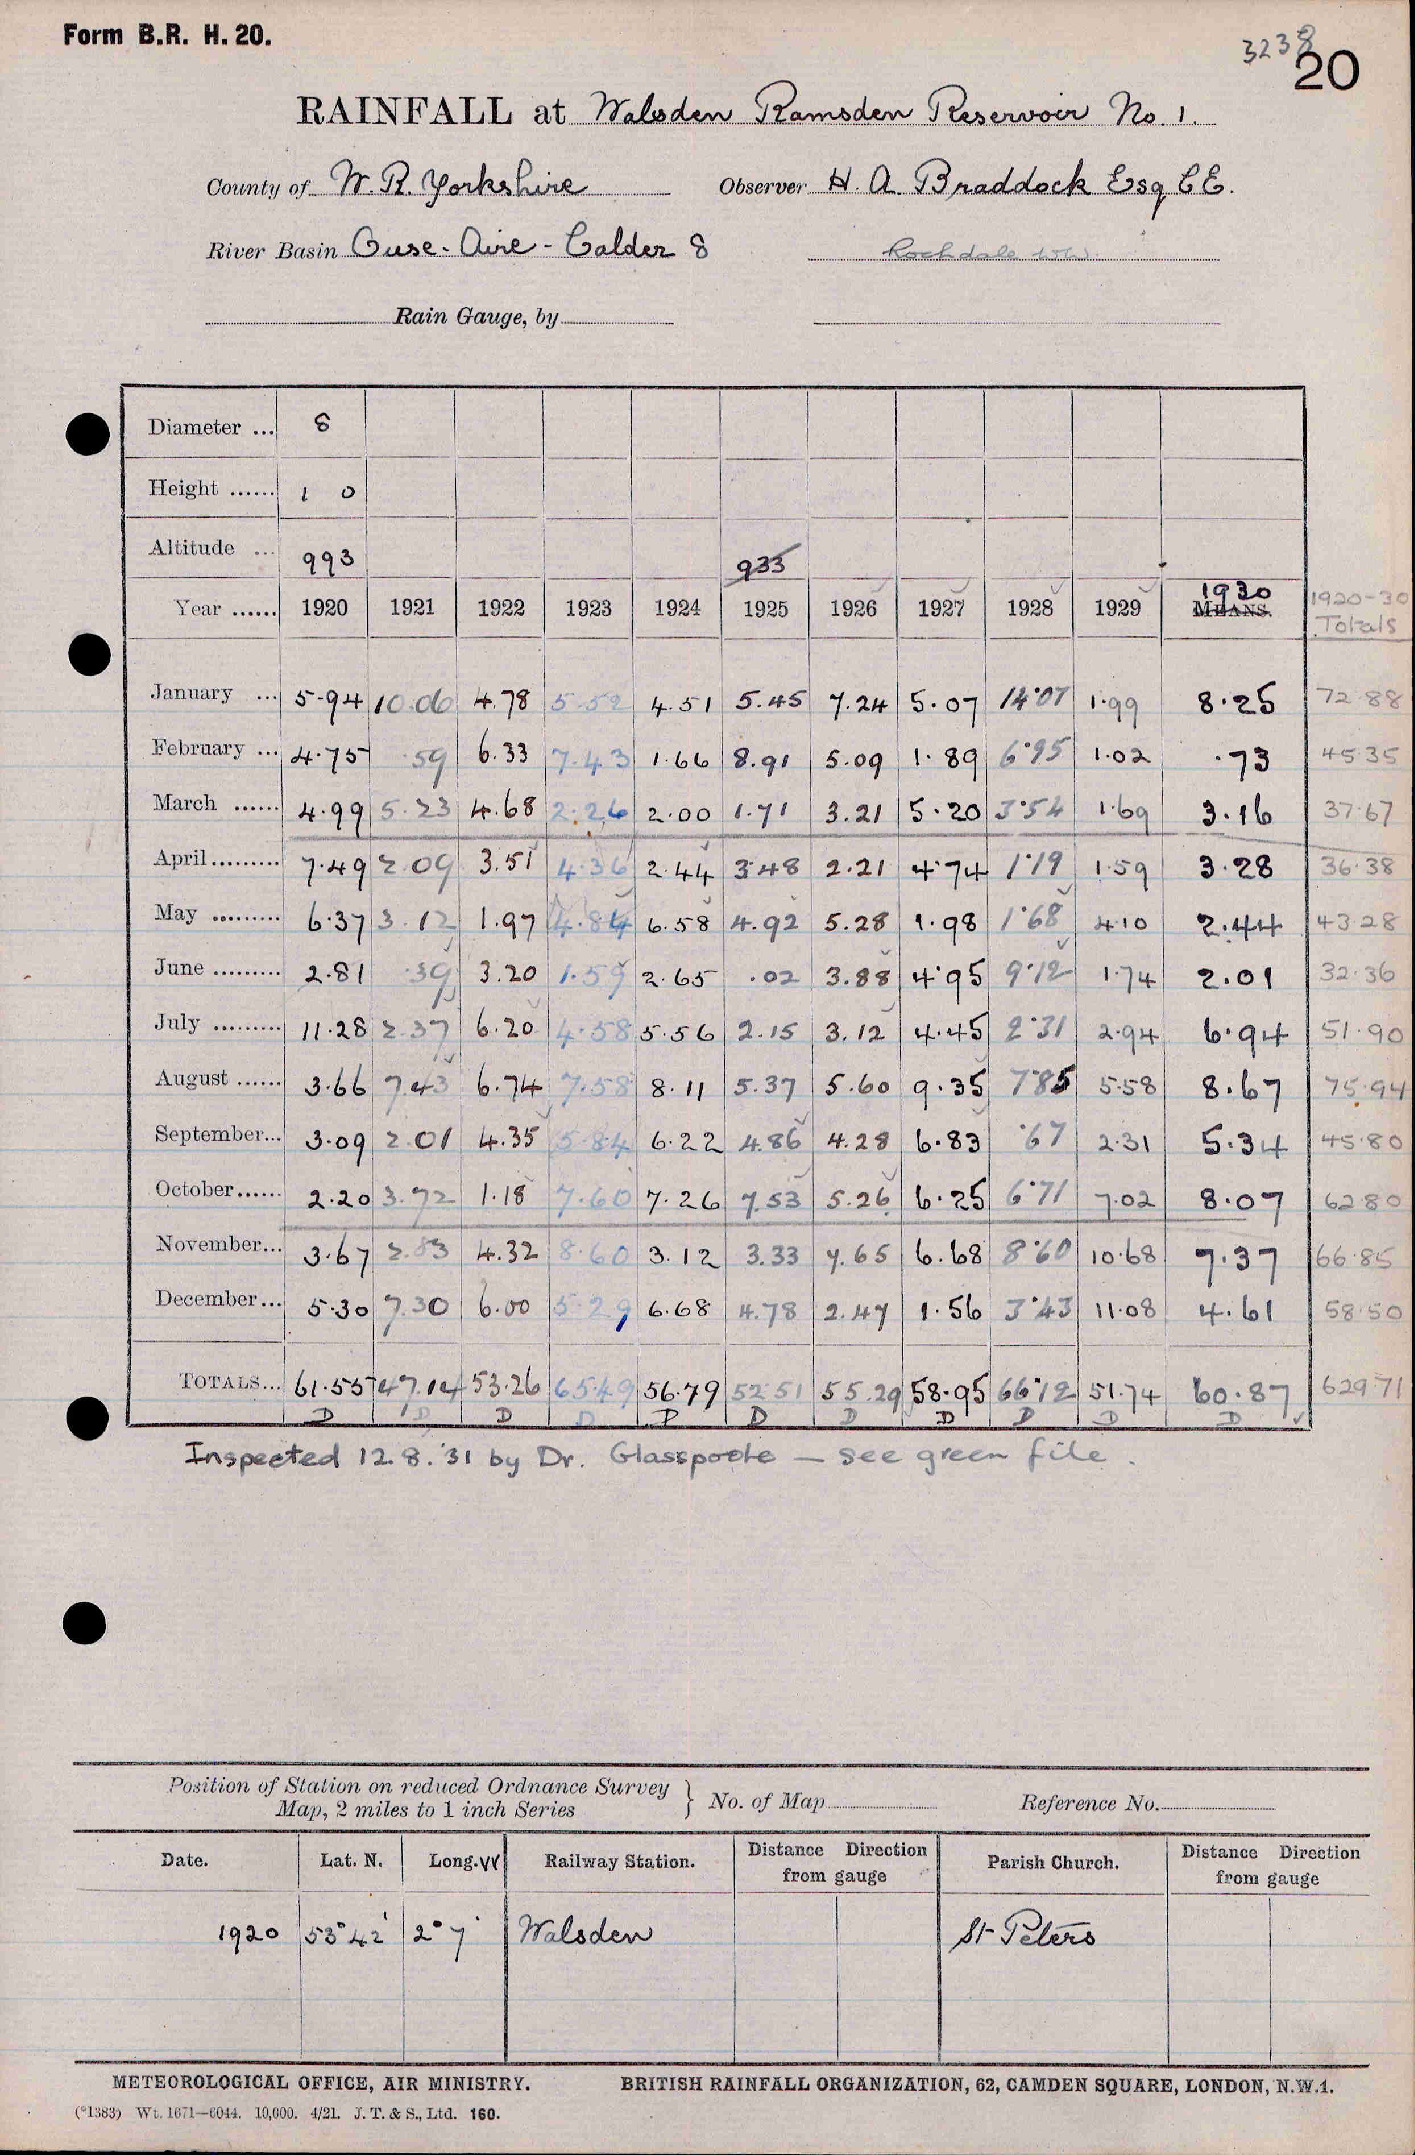 Form B.R. H. 20.
3238
20
RAINFALL at Walsden Ramsden Reservoir No. 1.
County of W. R. Yorkshire Observer H. A. Braddock Esq C E.
River Basin Ouse - Aire - Calder 8 Rochdale WW.
Rain Gauge, by
Diameter ... 8
Height ...... 1 0
Altitude ... 993 933
Year ...... 1920 1921 1922 1923 1924 1925 1926 1927 1928 1929 1930 MEANS. 1920-30 Totals
January ... 5.94 10.06 4.78 5.52 4.51 5.45 7.24 5.07 14.07 1.99 8.25 72.88
February ... 4.75 .59 6.33 7.43 1.66 8.91 5.09 1.89 6.95 1.02 .73 45.35
March ...... 4.99 5.23 4.68 2.26 2.00 1.71 3.21 5.20 3.54 1.69 3.16 37.67
April ......... 7.49 2.09 3.51 4.36 2.44 3.48 2.21 4.74 1.19 1.59 3.28 36.38
May ......... 6.37 3.12 1.97 4.84 6.58 4.92 5.28 1.98 1.68 4.10 2.44 43.28
June ......... 2.81 .39 3.20 1.59 2.65 .02 3.88 4.95 9.12 1.74 2.01 32.36
July ......... 11.28 2.37 6.20 4.58 5.56 2.15 3.12 4.45 2.31 2.94 6.94 51.90
August ...... 3.66 7.43 6.74 7.58 8.11 5.37 5.60 9.35 7.85 5.58 8.67 75.94
September... 3.09 2.01 4.35 5.84 6.22 4.86 4.28 6.83 .67 2.31 5.34 45.80
October...... 2.20 3.72 1.18 7.60 7.26 7.53 5.26 6.25 6.71 7.02 8.07 62.80
November... 3.67 2.83 4.32 8.60 3.12 3.33 7.65 6.68 8.60 10.68 7.37 66.85
December... 5.30 7.30 6.00 5.29 6.68 4.78 2.47 1.56 3.43 11.08 4.61 58.50
TOTALS... 61.55 47.14 53.26 65.49 56.79 52.51 55.29 58.95 66.12 51.74 60.87 629.71
D D D D D D D D D D D
Inspected 12.8.'31 by Dr. Glasspoole — see green file.
Position of Station on reduced Ordnance Survey
Map, 2 miles to 1 inch Series } No. of Map Reference No.
Date. Lat. N. Long. W Railway Station. Distance Direction from gauge Parish Church. Distance Direction from gauge
1920 53° 42' 2° 7' Walsden St Peters
METEOROLOGICAL OFFICE, AIR MINISTRY. BRITISH RAINFALL ORGANIZATION, 62, CAMDEN SQUARE, LONDON, N.W.1.
(*1383) Wt. 1671—6044. 10,000. 4/21. J. T. & S., Ltd. 160.